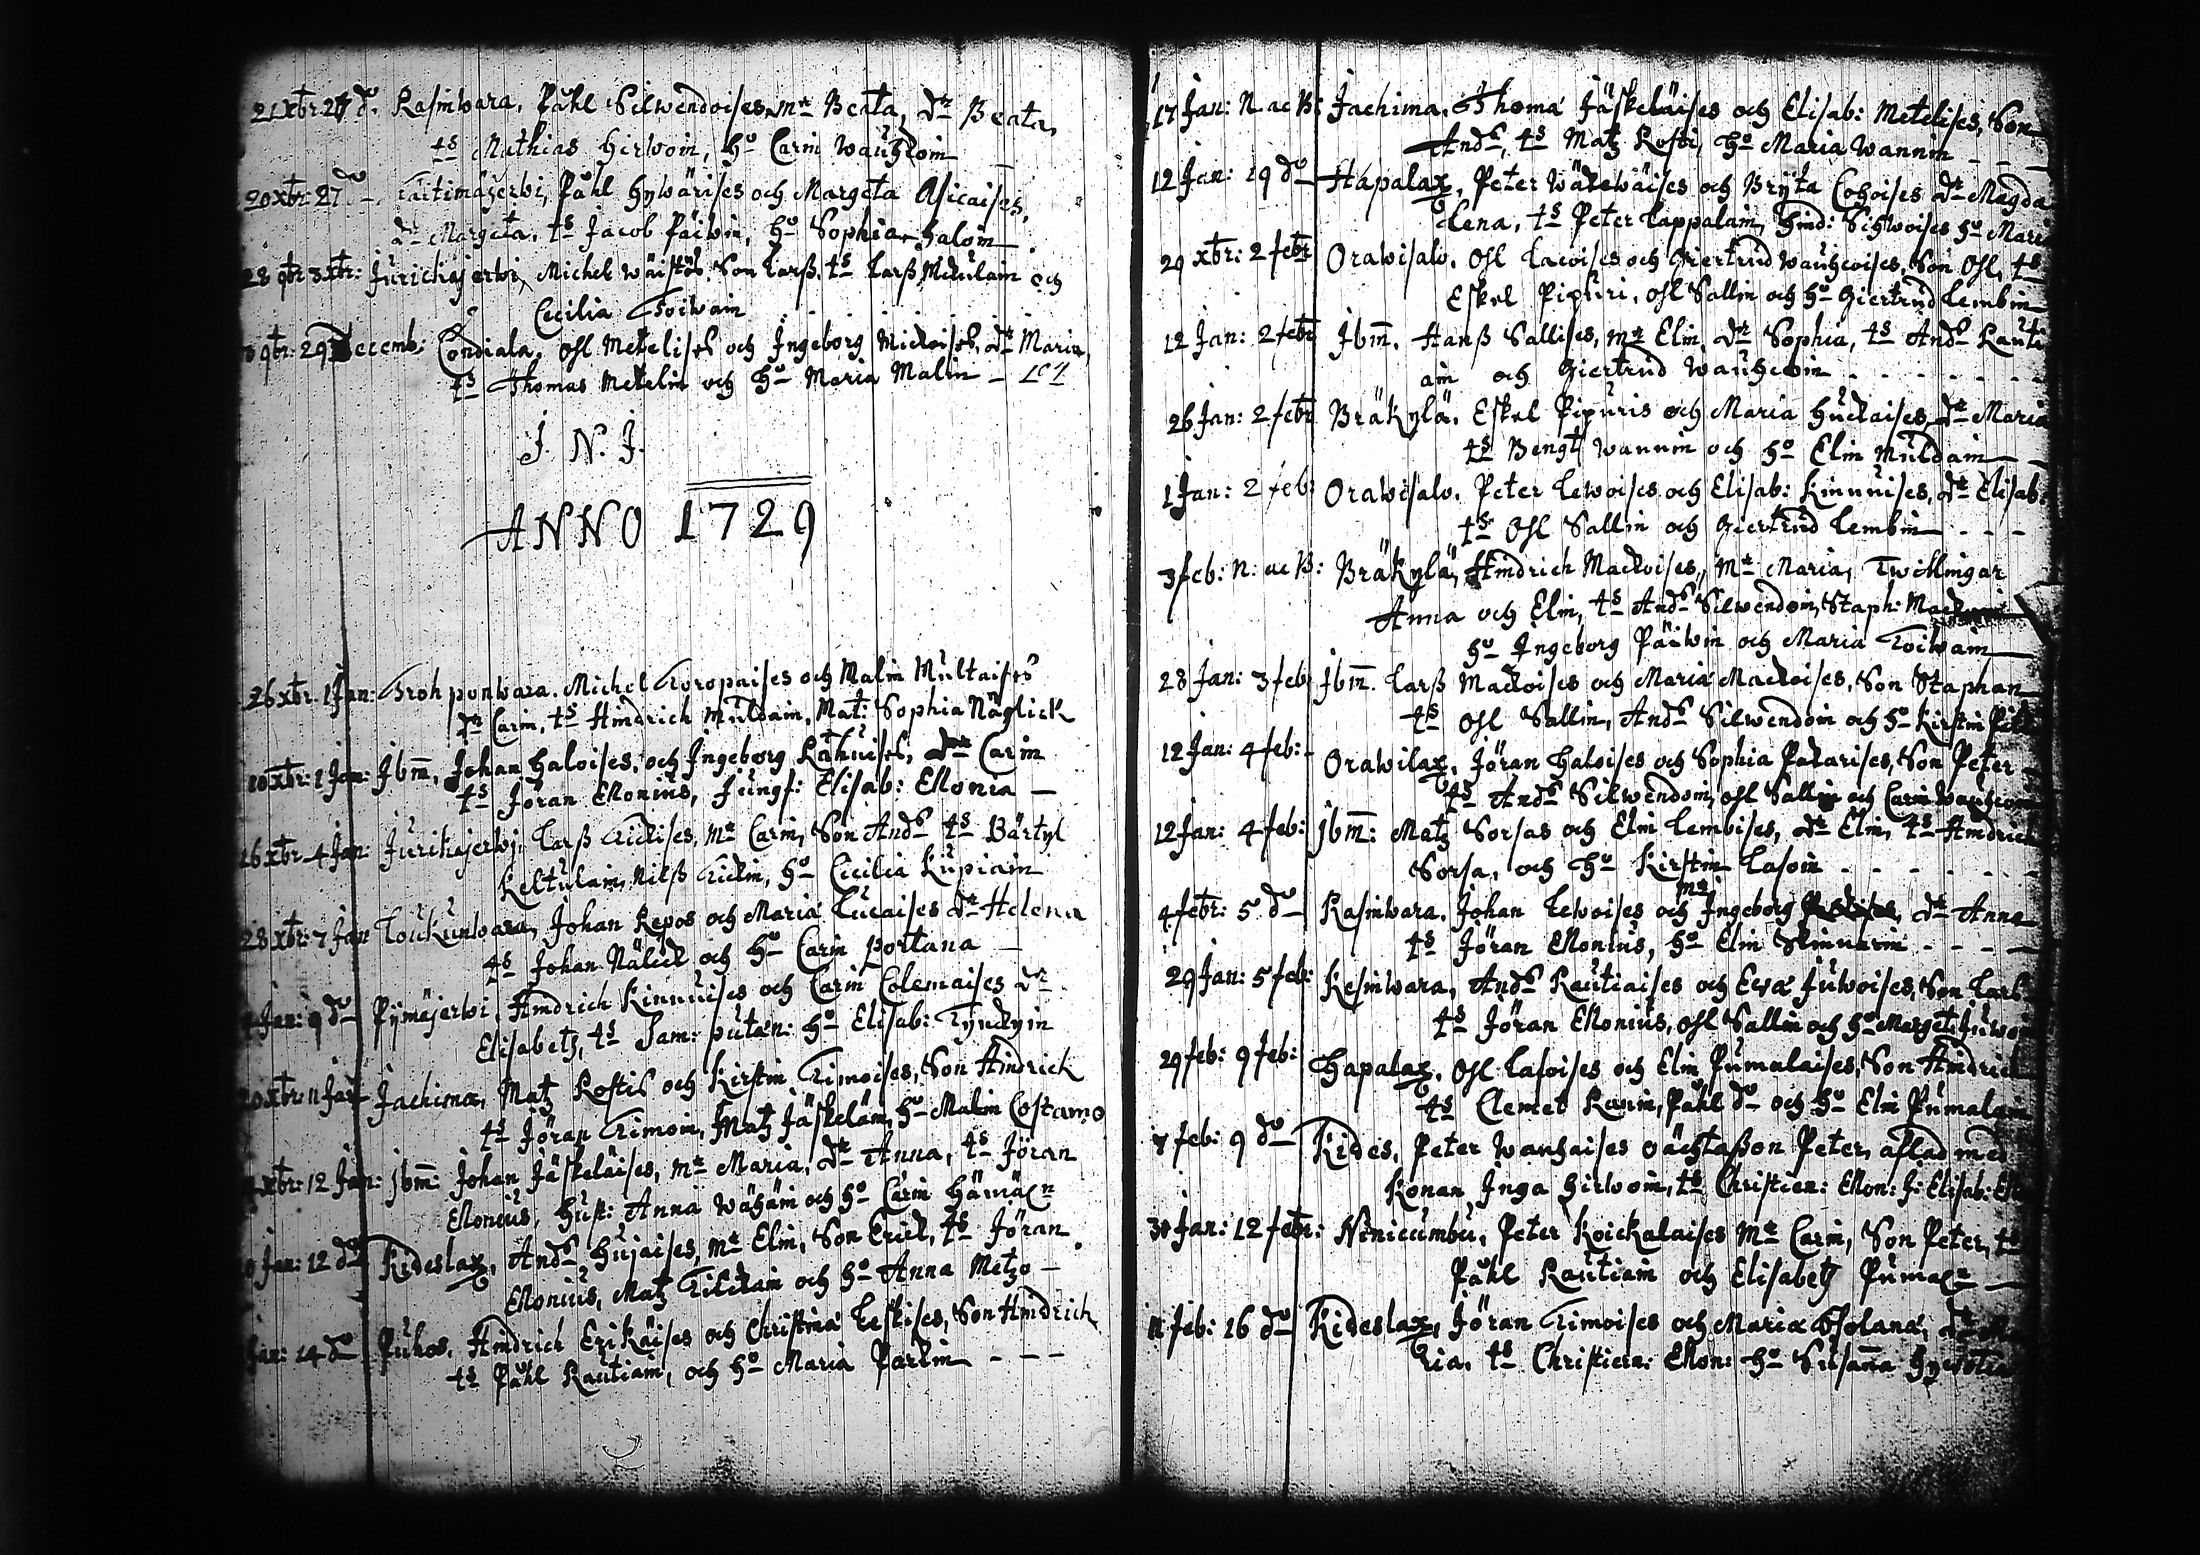 21 xbr 27 do. Rasiwara, Påhl Silwendoises, mr Beata, dr Beata,
ts Mathias Hirwoin, ho Carin Wauhkoin
20 xbr. 27 do – Taitimäjerwi, Påhl Hywärises och Margeta Asicaises,
dr Margeta, ts Jacob Päiwin, ho Sophia Haloin
28 9br 3 xbr: Jurickajerwi, Michel Wäistös Son Larß, ts Larß Mickulain och
Cicilia Toiwain
9br: 29 Decemb: Condiala, Ohl Metelises och Ingeborg Mickoises, dr Maria,
ts Thomas Metelin och ho Maria Malin –
J. N. J.
ANNO 1729
26 xbr. 1 Jan: Trohponwara. Michel Toropaises och Malin Multaises
dr Carin, ts Hindrich Muldain, Mat: Sophia Näglick
10 xbr: 1 Jan: Jbm̄, Johan Haloises, och Ingeborg Rähuises, dr Carin
ts Jöran Monius, Jungf: Elisab: Monia –
16 xbr 4 Jan: Jurikajerwj, Larß Tickises, mr Carin, Son Ands ts Bärtyl
Keltulain, Nilß Tickin, ho Cicilia Kupiain
28 xbr: 7 Jan Loukunwara, Johan Repos och Maria Lucaises dr Helena
ts Johan Nälick och ho Carin Portana –
Jan: 9 do Pymäjerwi, Hindrich Kinnuises och Carin Colemaises dr
Elisabeth, ts Sam: putän: ho Elisab: Tynckyin
20 xbr: 11 Jan Jachima, Matz Rostis och Kirstin Timoises, Son Hindrick
ts Jöran Timoin, Matz Jäskeläin, ho Malin Costamo
xbr: 12 Jan: jbm̄: Johan Jäskeläises, mr Maria, dr Anna, ts Jöran
Monius, Hust: Anna Wähäin och ho Carin Hämäln
Jan: 12 do Kideslax, Ands Hujaises, mr Elin, Son Erick, ts Jöran
Monius, Matz Tickain och ho Anna Metzo –
Jan: 14 do Puhos, Hindrich Erikäises och Christina Leskises, Son Hindrich
ts Påhl Rautiain, och ho Maria Parkin – – –
17 Jan: N ac B: Jachima, Thoma Jäskeläises och Elisab: Metelises, Son
Ands, ts Matz Rosti, ho Maria Wannin – –
12 Jan: 19 do Hapalax, Peter Wäkewäises och Bryta Cohoises dr Magda
lena, ts Peter Lappalain, Hind: Sihwoises ho Mari
29 xbr: 2 febr Orawisalo. Ohl Lacoises och Giertrud Wauhcoises, Son Ohl, ts
Eskel Pipuri, Ohl Sallin och ho Giertrud Lembin
12 Jan: 2 febr Jbm̄. Hanß Sallises, mr Elin, dr Sophia, ts Ands Rauti
ain och Giertrud Wauhcoin – – – – – –
26 Jan: 2 febr Bräkylä. Eskel Pipuris och Maria Huckaises, dr Maria
ts Bengt Wannin och ho Elin Muldain
1 Jan: 2 feb: Orawisalo. Peter Lewoises och Elisab: Kinnuises, dr Elisab:
ts Ohl Sallin och Giertrud Lembin – – –
3 feb: N: ac B: Bräkylä, Hindrich Mackoises, Mr Maria, Twillingar
Anna och Elin, ts Ands Silwendoin, Staph:
ho Ingeborg Päiwin och Maria Toiwain
28 Jan: 3 feb: Jbm̄. Larß Mackoises och Maria Mackoises, Son Staphan
ts Ohl Sallin, Ands Silwendoin och ho Kirstin
12 Jan: 4 feb: – Orawilax, Jöran Haloises och Sophia Pakarises, Son Peter
ts Ands Silwendoin, Ohl Sallin och Carin Wauhcoin
12 Jan: 4 feb: jbm̄: Matz Sorsas och Elin Lembises, dr Elin, ts Hindrich
Sorsa, och ho Kirstin Lasoin – – – – –
4 febr: 5 do Rasiwara. Johan Lewoises och mr Ingeborg, dr Anna
ts Jöran Monius, ho Elin Skinnarin – – – –
29 Jan: 5 feb: Kesiwara, Ands Rautiaises och Ewa Juwoises, Son Larß
ts Jöran Monius, Ohl Sallin och ho Marget: Juwoi
29 feb: 9 feb: Hapalax. Ohl Lasoises och Elin Pumalaises, Son Hindrich
ts Clemet Rauin, Påhl do och ho Elin Pumalain
7 feb: 9 do Kides, Peter Wauhaises oächtaßon Peter, aflad med
Konan Inga Hirwoin, ts Christiern: Mon: J: Elisab:
30 Jan: 12 febr: Ninicumbu, Peter Koickalaises Mr Carin, Son Peter, ts
Påhl Rautiain och Elisabeth Pumaln
11 feb: 16 do Kideslax, Jöran Timoises och Maria Asolana, dr Ma
ria, ts Christiern: Mon: ho Susanna